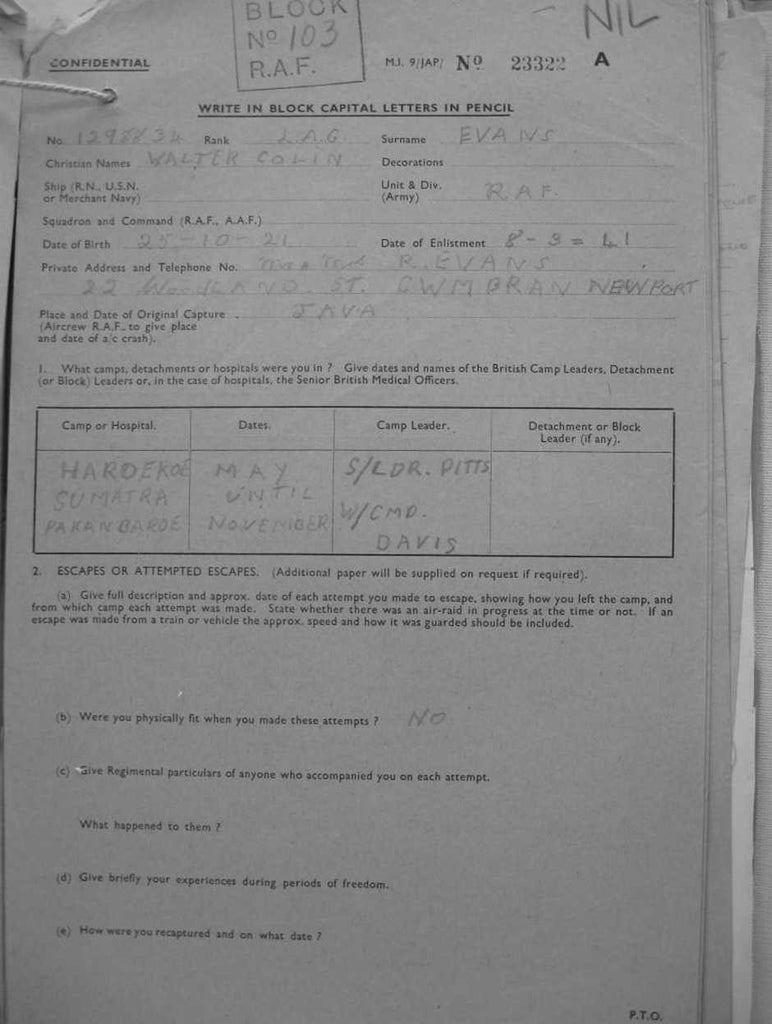 BLOCK
Nº 103
R.A.F.
NIL
CONFIDENTIAL
M.I. 9/JAP/ Nº 23322 A
WRITE IN BLOCK CAPITAL LETTERS IN PENCIL
No. 1298834 Rank L.A.C. Surname EVANS
Christian Names WALTER COLIN Decorations
Ship (R.N., U.S.N. or Merchant Navy) Unit & Div. (Army) R.A.F.
Squadron and Command (R.A.F., A.A.F.)
Date of Birth 25-10-21 Date of Enlistment 8-3=41
Private Address and Telephone No. R. EVANS
22 WOODLAND. ST. CWMBRAN NEWPORT
Place and Date of Original Capture JAVA
(Aircrew R.A.F. to give place
and date of a/c crash).
1. What camps, detachments or hospitals were you in ? Give dates and names of the British Camp Leaders, Detachment
(or Block) Leaders or, in the case of hospitals, the Senior British Medical Officers.
Camp or Hospital. Dates. Camp Leader. Detachment or Block Leader (if any).
HARDEKOE MAY S/LDR. PITTS
SUMATRA UNTIL
PAKANBAROE NOVEMBER W/CMD.
DAVIS
2. ESCAPES OR ATTEMPTED ESCAPES. (Additional paper will be supplied on request if required).
(a) Give full description and approx. date of each attempt you made to escape, showing how you left the camp, and
from which camp each attempt was made. State whether there was an air-raid in progress at the time or not. If an
escape was made from a train or vehicle the approx. speed and how it was guarded should be included.
(b) Were you physically fit when you made these attempts ? NO
(c) Give Regimental particulars of anyone who accompanied you on each attempt.
What happened to them ?
(d) Give briefly your experiences during periods of freedom.
(e) How were you recaptured and on what date ?
P.T.O.